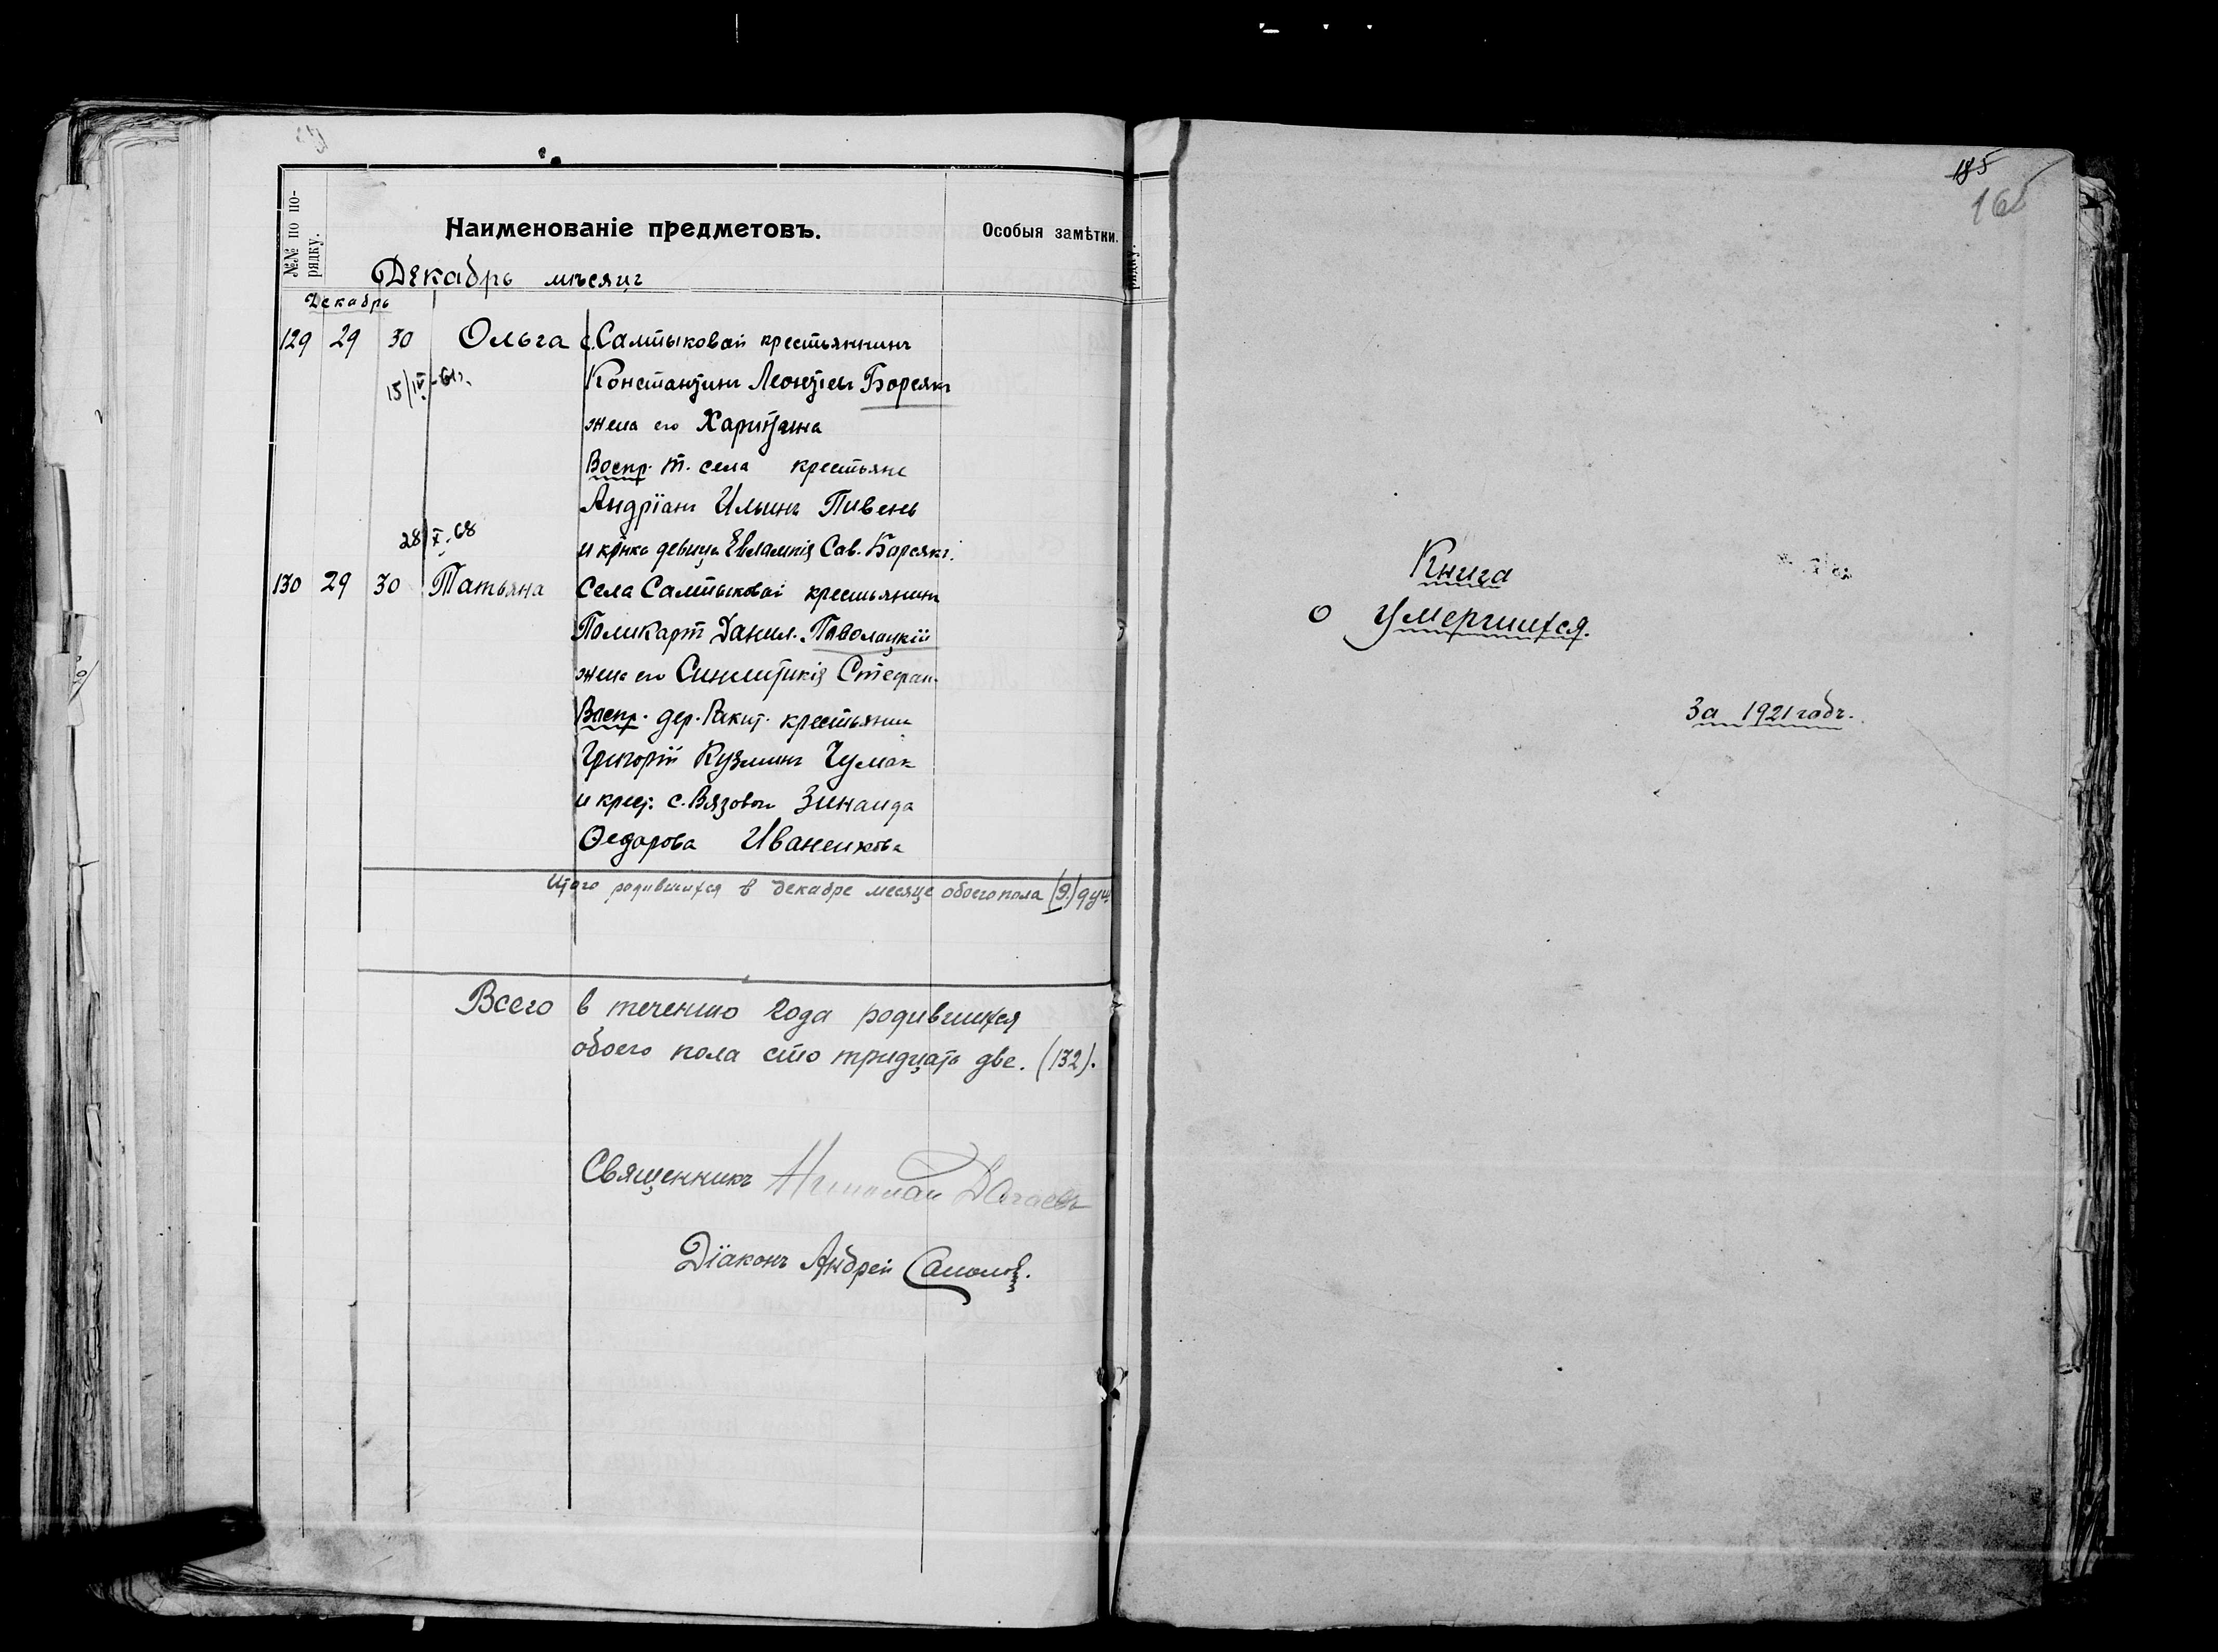 №№ по по-
рядку.
Наименованіе предметовъ.
Особыя замѣтки.
Декабрь мѣсяцъ
Декабрь
129 29 30 Ольга с. Салтыковой крестьянинъ
15/IV-61г. Константинъ Леонтіевъ Борсякъ
жена его Харитина
Воспр. т. села крестьяне
Андріанъ Ильинъ Пивень
28/X-68 и кр-нка девица Евлампія Сав. Борсякъ.
130 29 30 Татьяна Села Салтыковой крестьянинъ
Поликарп Данил. Паволоцкій
жена его Синклитикія Стефан.
Воспр. дер. Ракит. крестьянин
Григорій Кузминъ Чумак
и крест. с. Вязовой Зинаида
Ѳедорова Иваненкова
Итого родившихся в декабре месяце обоего пола (9.) душ
Всего в течению года родившихся
обоего пола сто тридцать две. (132).
Священникъ Николай
Діаконъ Андрей
185
165
Книга
о умершихся.
За 1921 годъ.